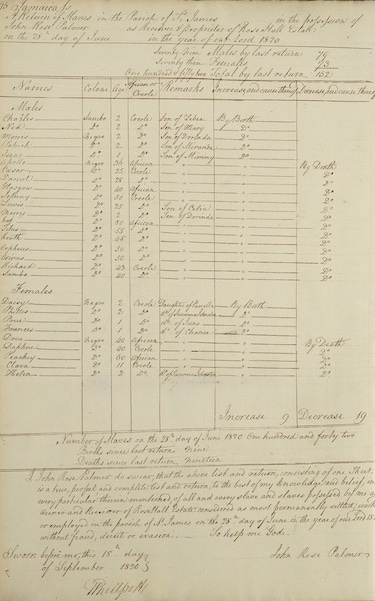 Jamaica Ss
A Return of Slaves in the Parish of St James in the possession of
John Rose Palmer as Receiver & Proprietor of Rose Hall Estate
on the 28th day of June in the year of our Lord 1820
Seventy nine Males by last return 79
Seventy three Females 73
One hundred fifty two Total by last return 152
Names Colour Age African or Creole Remarks Increase and cause thereof Decrease and cause thereof
Males
Charles Sambo 2 Creole Son of Celia By Birth
Ned Do 2 Do Son of Mary Do
Negro 2 Do Son of Dorinda Do
Patrick Do 2 Do Son of Miranda Do
Isaac Do 1 Do Son of Mimmy Do
Negro 36 African By Death
Caesar Do 25 Creole Do
Daniel Do 28 Do Do
Glasgow Do 40 African Do
Do 30 Creole Do
Lewis Do 25 Do Son of Celia Do
Morris Do 2 Do Son of Dorinda Do
Do 50 African Do
Titus Do 55 Do Do
Do 48 Do Do
Orpheus Do 50 Do Do
Do 50 Do Do
Richard Do 43 Creole Do
Do 40 Do Do
Females
Daisy Negro 2 Creole Daughter of Camilla By Birth
Phillis Do 2 Do Do
Do 1 Do Do of June Do
Frances Do 1 Do Do of Chance Do
Dove Negro 40 African By Death
Daphne Do 40 Creole Do
Peachy Do 60 African Do
Clara Do 11 Creole Do
Helen Do 2 Do Do
Increase 9 Decrease 19
Number of Slaves on the 28th day of June 1820 One hundred and forty two
Births since last return Nine
Deaths since last return Nineteen
I John Rose Palmer do swear, that the above list and return, consisting of one Sheet
is a true, perfect and complete list and return, to the best of my knowledge and belief, in
every particular therein mentioned, of all and every slave and slaves possessed by me as
owner and Receiver of Rose Hall Estate considered as most permanently settled, worked
or employed in the parish of St James on the 28th day of June in the year of our Lord 18
without fraud, deceit or evasion. So help me God.
Sworn before me, this 18th day John Rose Palmer
of September 1820